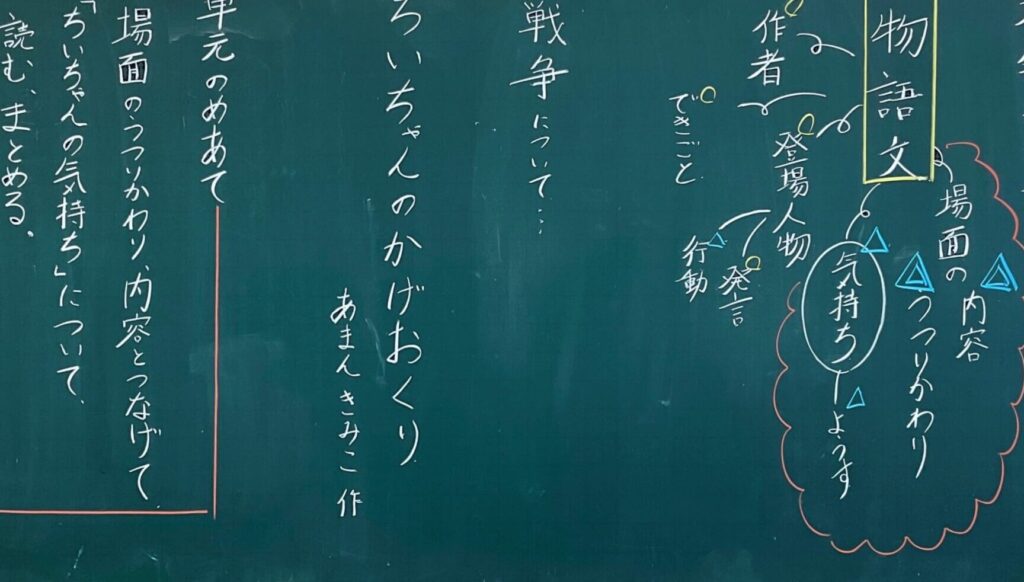 物語文
場面の
内容
うつりかわり
気持ち
ようす
作者
登場人物
発言
行動
できごと
戦争について…
ちいちゃんのかげおくり
あまんきみこ 作
単元のめあて
場面のうつりかわり、内容とつなげて、
「ちいちゃんの気持ち」について、
読む、まとめる。